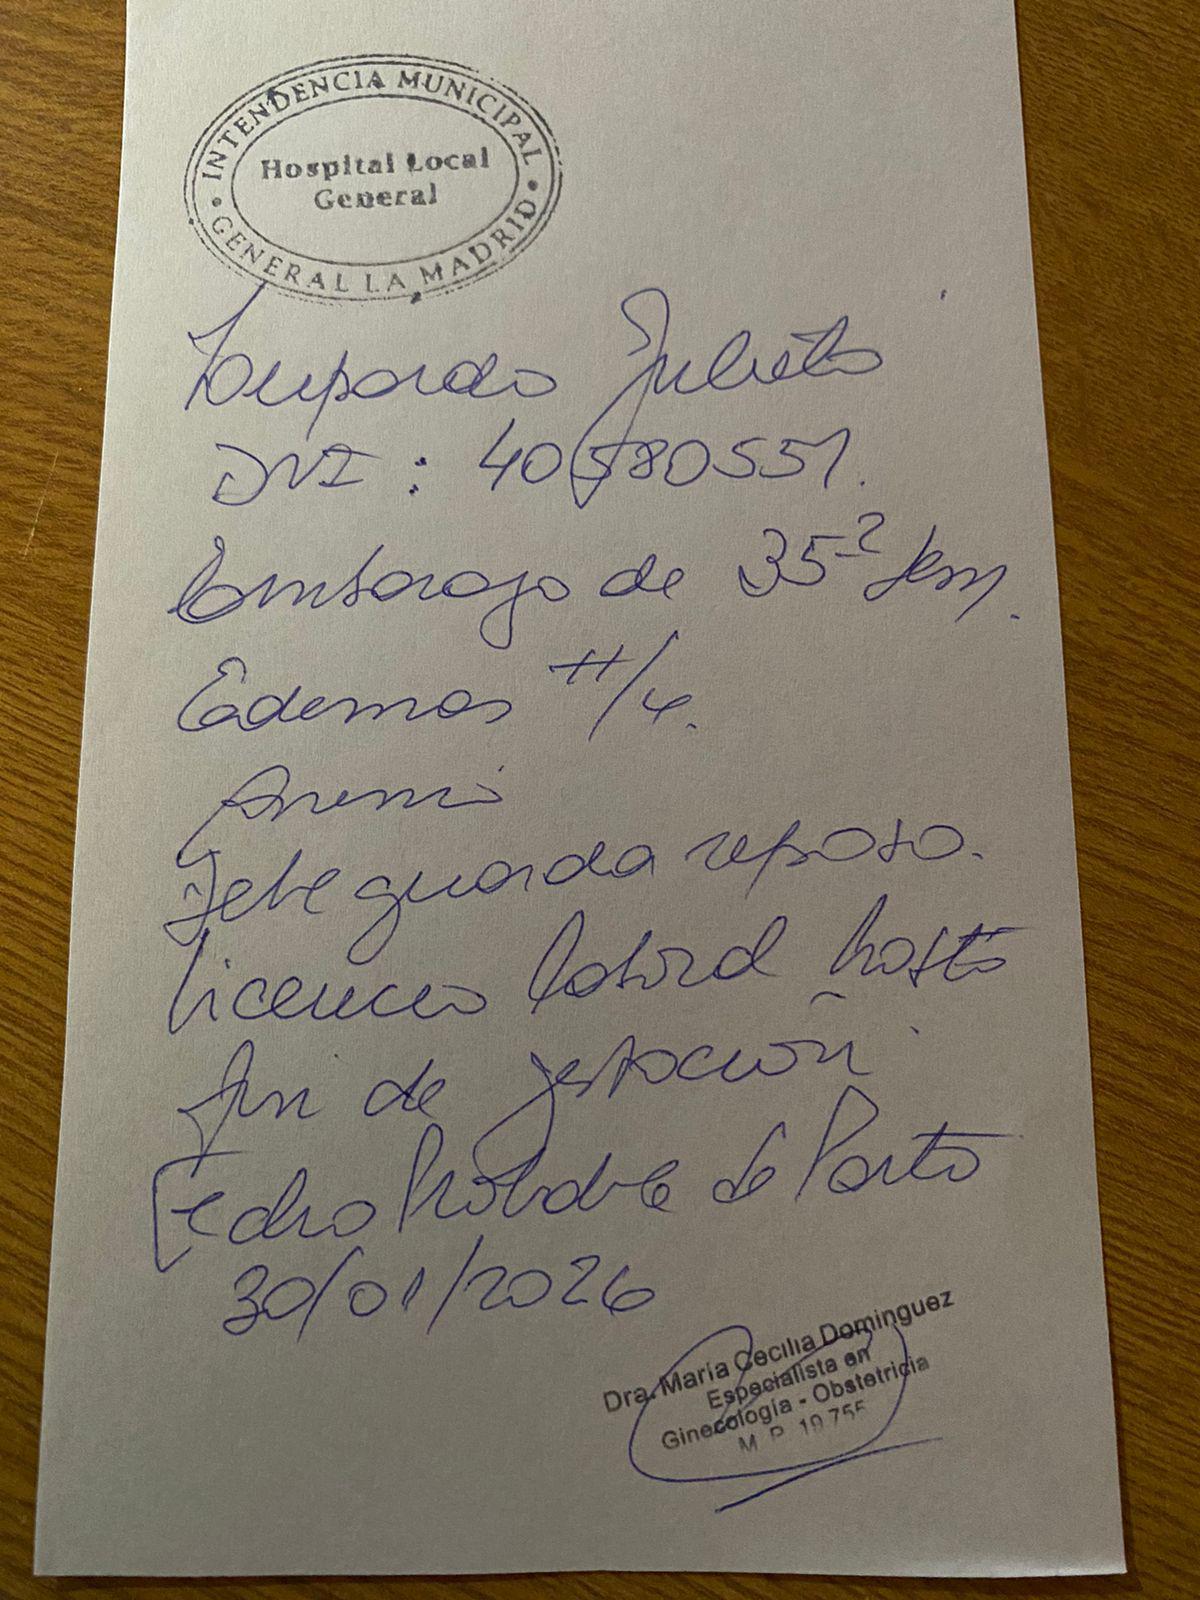 INTENDENCIA MUNICIPAL
Hospital Local
General
GENERAL LA MADRID
Julieta
DNI: 40580551.
Embarazo de 35-2 sem.
Edemas ++/4.
Anemia
Debe guarda reposo.
Licencia laboral hasta
fin de gestación.
Fecha Probable de Parto
30/01/2026
Dra. María Cecilia Dominguez
Especialista en
Ginecología - Obstetricia
M. P. 19.755